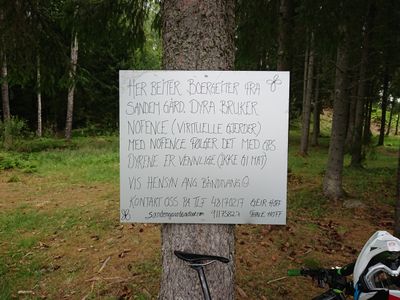 HER BEITER BOERGEITER FRA
SANDEM GÅRD. DYRA BRUKER
NOFENCE (VIRTUELLE GJERDER)
MED NOFENCE FØLGER DET MED GPS
DYRENE ER VENNLIGE (IKKE GI MAT)
VIS HENSYN ANG BÅNDTVANG
KONTAKT OSS PÅ TLF 48170217 GEIR HOFF
91175827 HOFF